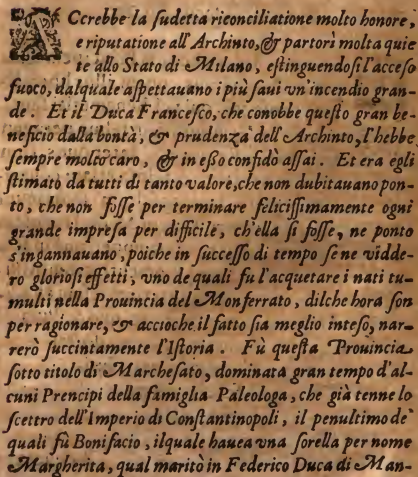 ACcrebbe la sudetta riconciliatione molto honore,
e riputatione all' Archinto, & partorì molta quie
te allo Stato di Milano, estinguendosi l'acceso
fuoco, dalquale aspettauano i più saui vn'incendio gran-
de. Et il Duca Francesco, che conobbe questo gran be-
neficio dalla bontà, & prudenza dell' Archinto, l'hebbe
sempre molto caro, & in esso confidò assai. Et era egli
stimato da tutti di tanto valore, che non dubitauano pon-
to, che non fosse per terminare felicissimamente ogni
grande impresa per difficile, ch'ella si fosse, ne ponto
s'ingannauano, poiche in successo di tempo se ne vidde-
ro gloriosi effetti, vno de quali fu l'acquetare i nati tu-
multi nella Prouincia del Monferrato, dilche hora son
per ragionare, & accioche il fatto sia meglio inteso, nar-
rerò succintamente l'Istoria. Fù questa Prouincia
sotto titolo di Marchesato, dominata gran tempo d'al-
cuni Prencipi della famiglia Paleologa, che già tenne lo
scettro dell' Imperio di Constantinopoli, il penultimo de'
quali fù Bonifacio, ilquale hauea vna sorella per nome
Margherita, qual maritò in Federico Duca di Man-